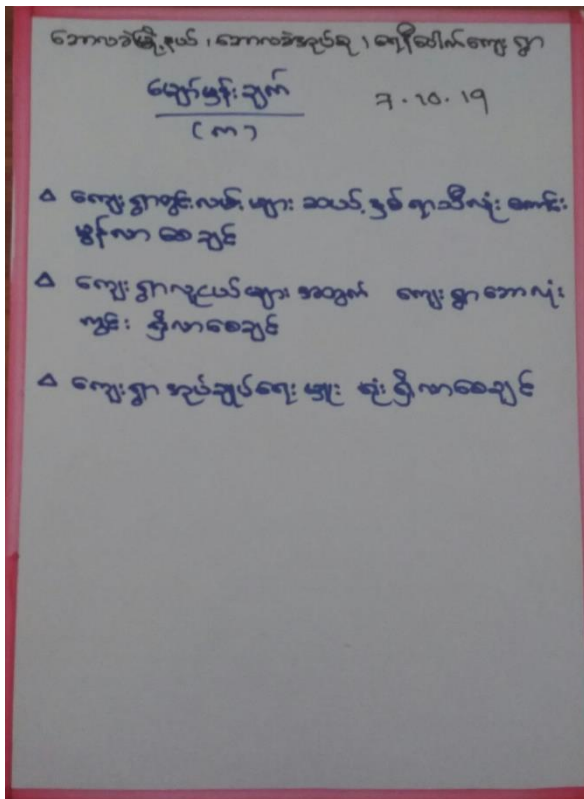 ဘောလခဲမြို့နယ်၊ ဘောလခဲအုပ်စု၊ ရေနီပေါက်ကျေးရွာ
မျှော်မှန်းချက် ၇.၁၀.၁၉
(က)
△ ကျေးရွာတွင်းလမ်းများ ဆယ့်နှစ်ရာသီလုံး ကောင်း
မွန်လာစေချင်
△ ကျေးရွာလူငယ်များအတွက် ကျေးရွာဘောလုံး
ကွင်း ရှိလာစေချင်
△ ကျေးရွာ အုပ်ချုပ်ရေးမှူး ရုံးရှိလာစေချင်